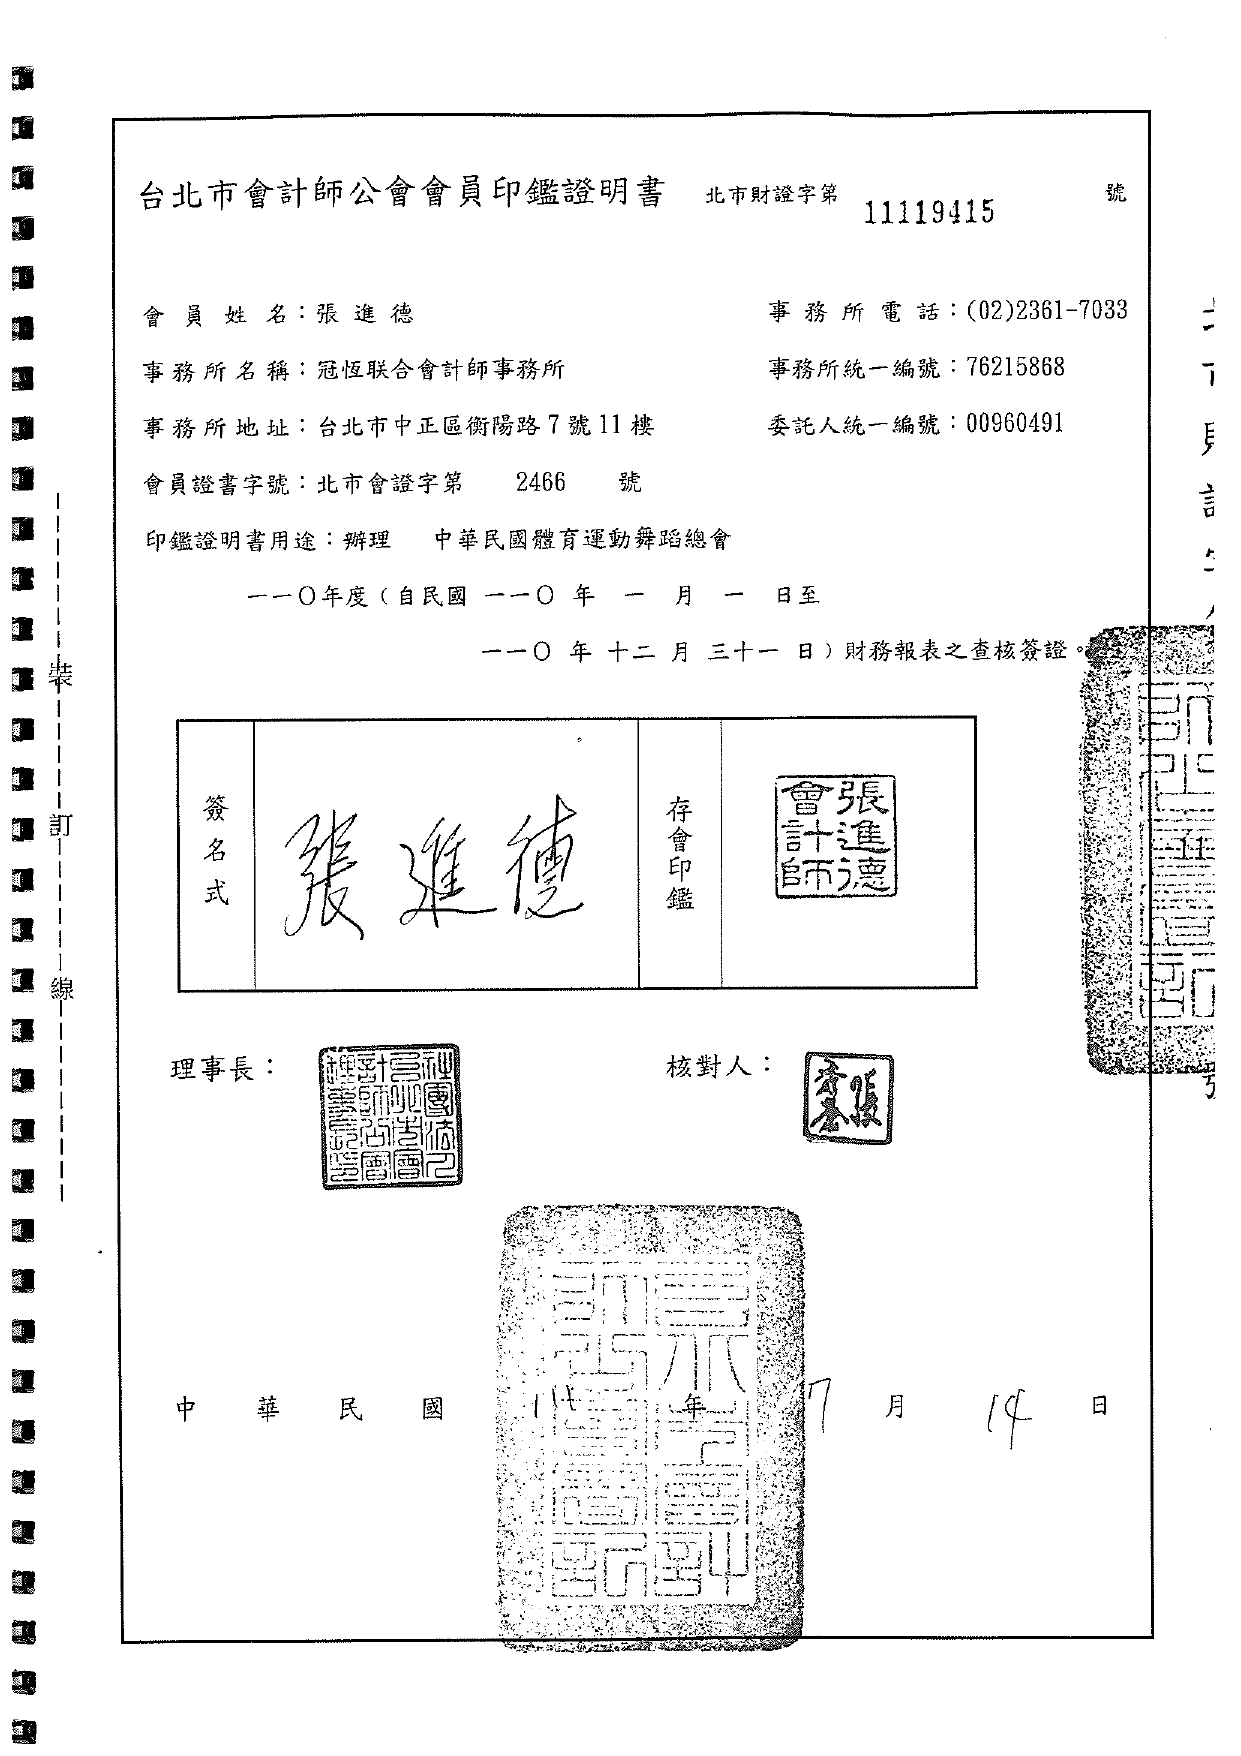 台北市會計師公會會員印鑑證明書 北市財證字第 11119415 號
會員姓名：張進德 事務所電話：(02)2361-7033
事務所名稱：冠恆联合會計師事務所 事務所統一編號：76215868
事務所地址：台北市中正區衡陽路7號11樓 委託人統一編號：00960491
會員證書字號：北市會證字第 2466 號
印鑑證明書用途：辦理 中華民國體育運動舞蹈總會
一一○年度（自民國 一一○ 年 一 月 一 日至
一一○ 年 十二 月 三十一 日）財務報表之查核簽證。
簽名式
張進德
存會印鑑
張進德
會計師
理事長：
核對人：
中華民國 年 7 月 14 日
裝訂線
北市財證字第
號